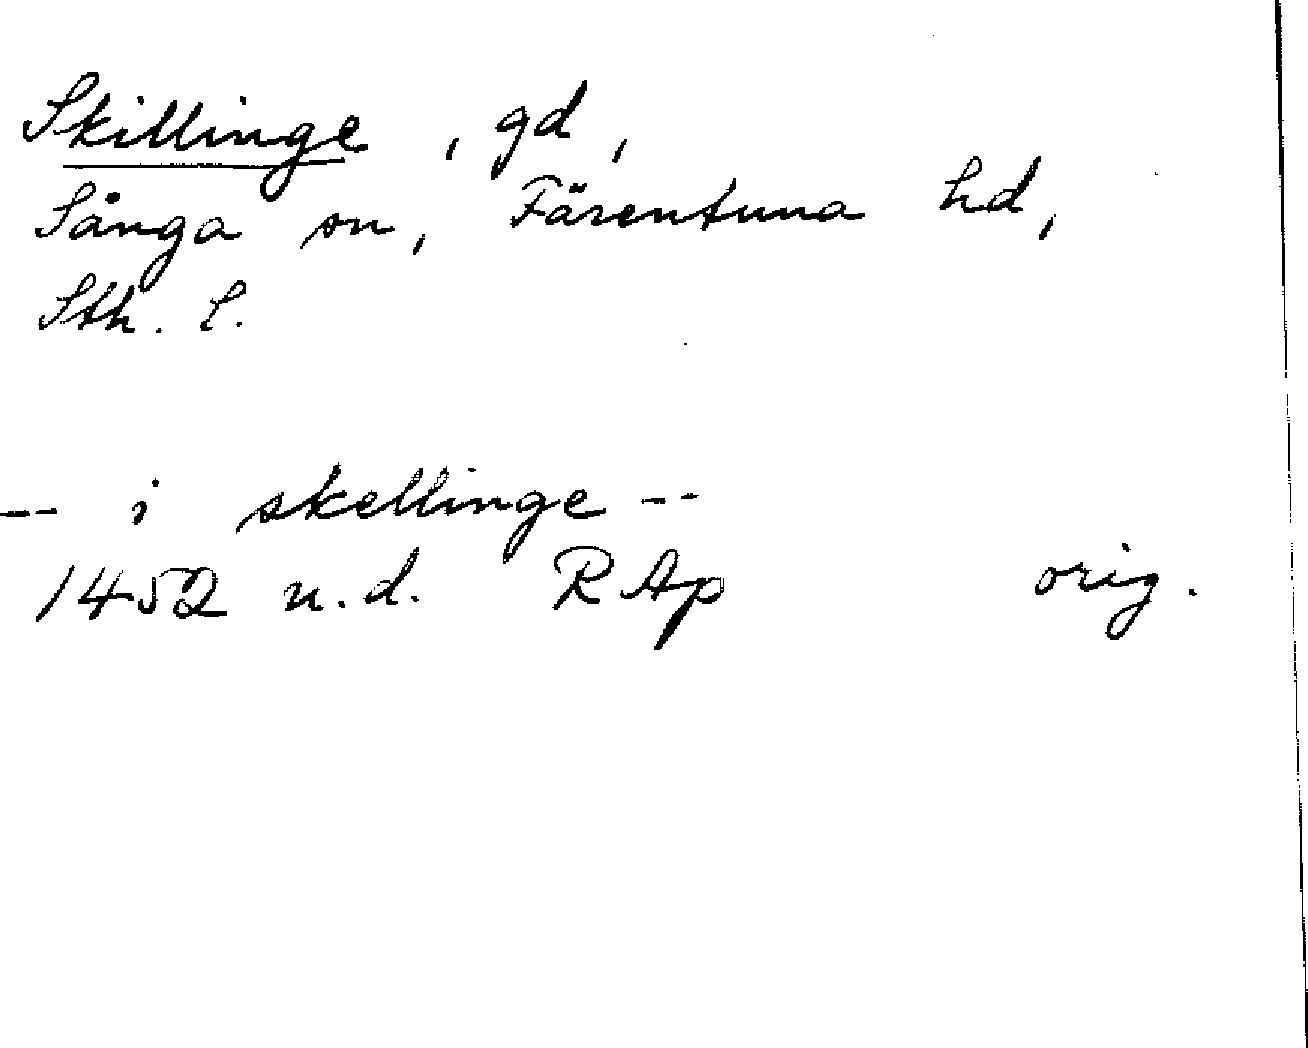 Skillinge, gd,
Sånga sn, Färentuna hd,
Sth. l.
-- i skellinge --
1452 u.d. RAp orig.